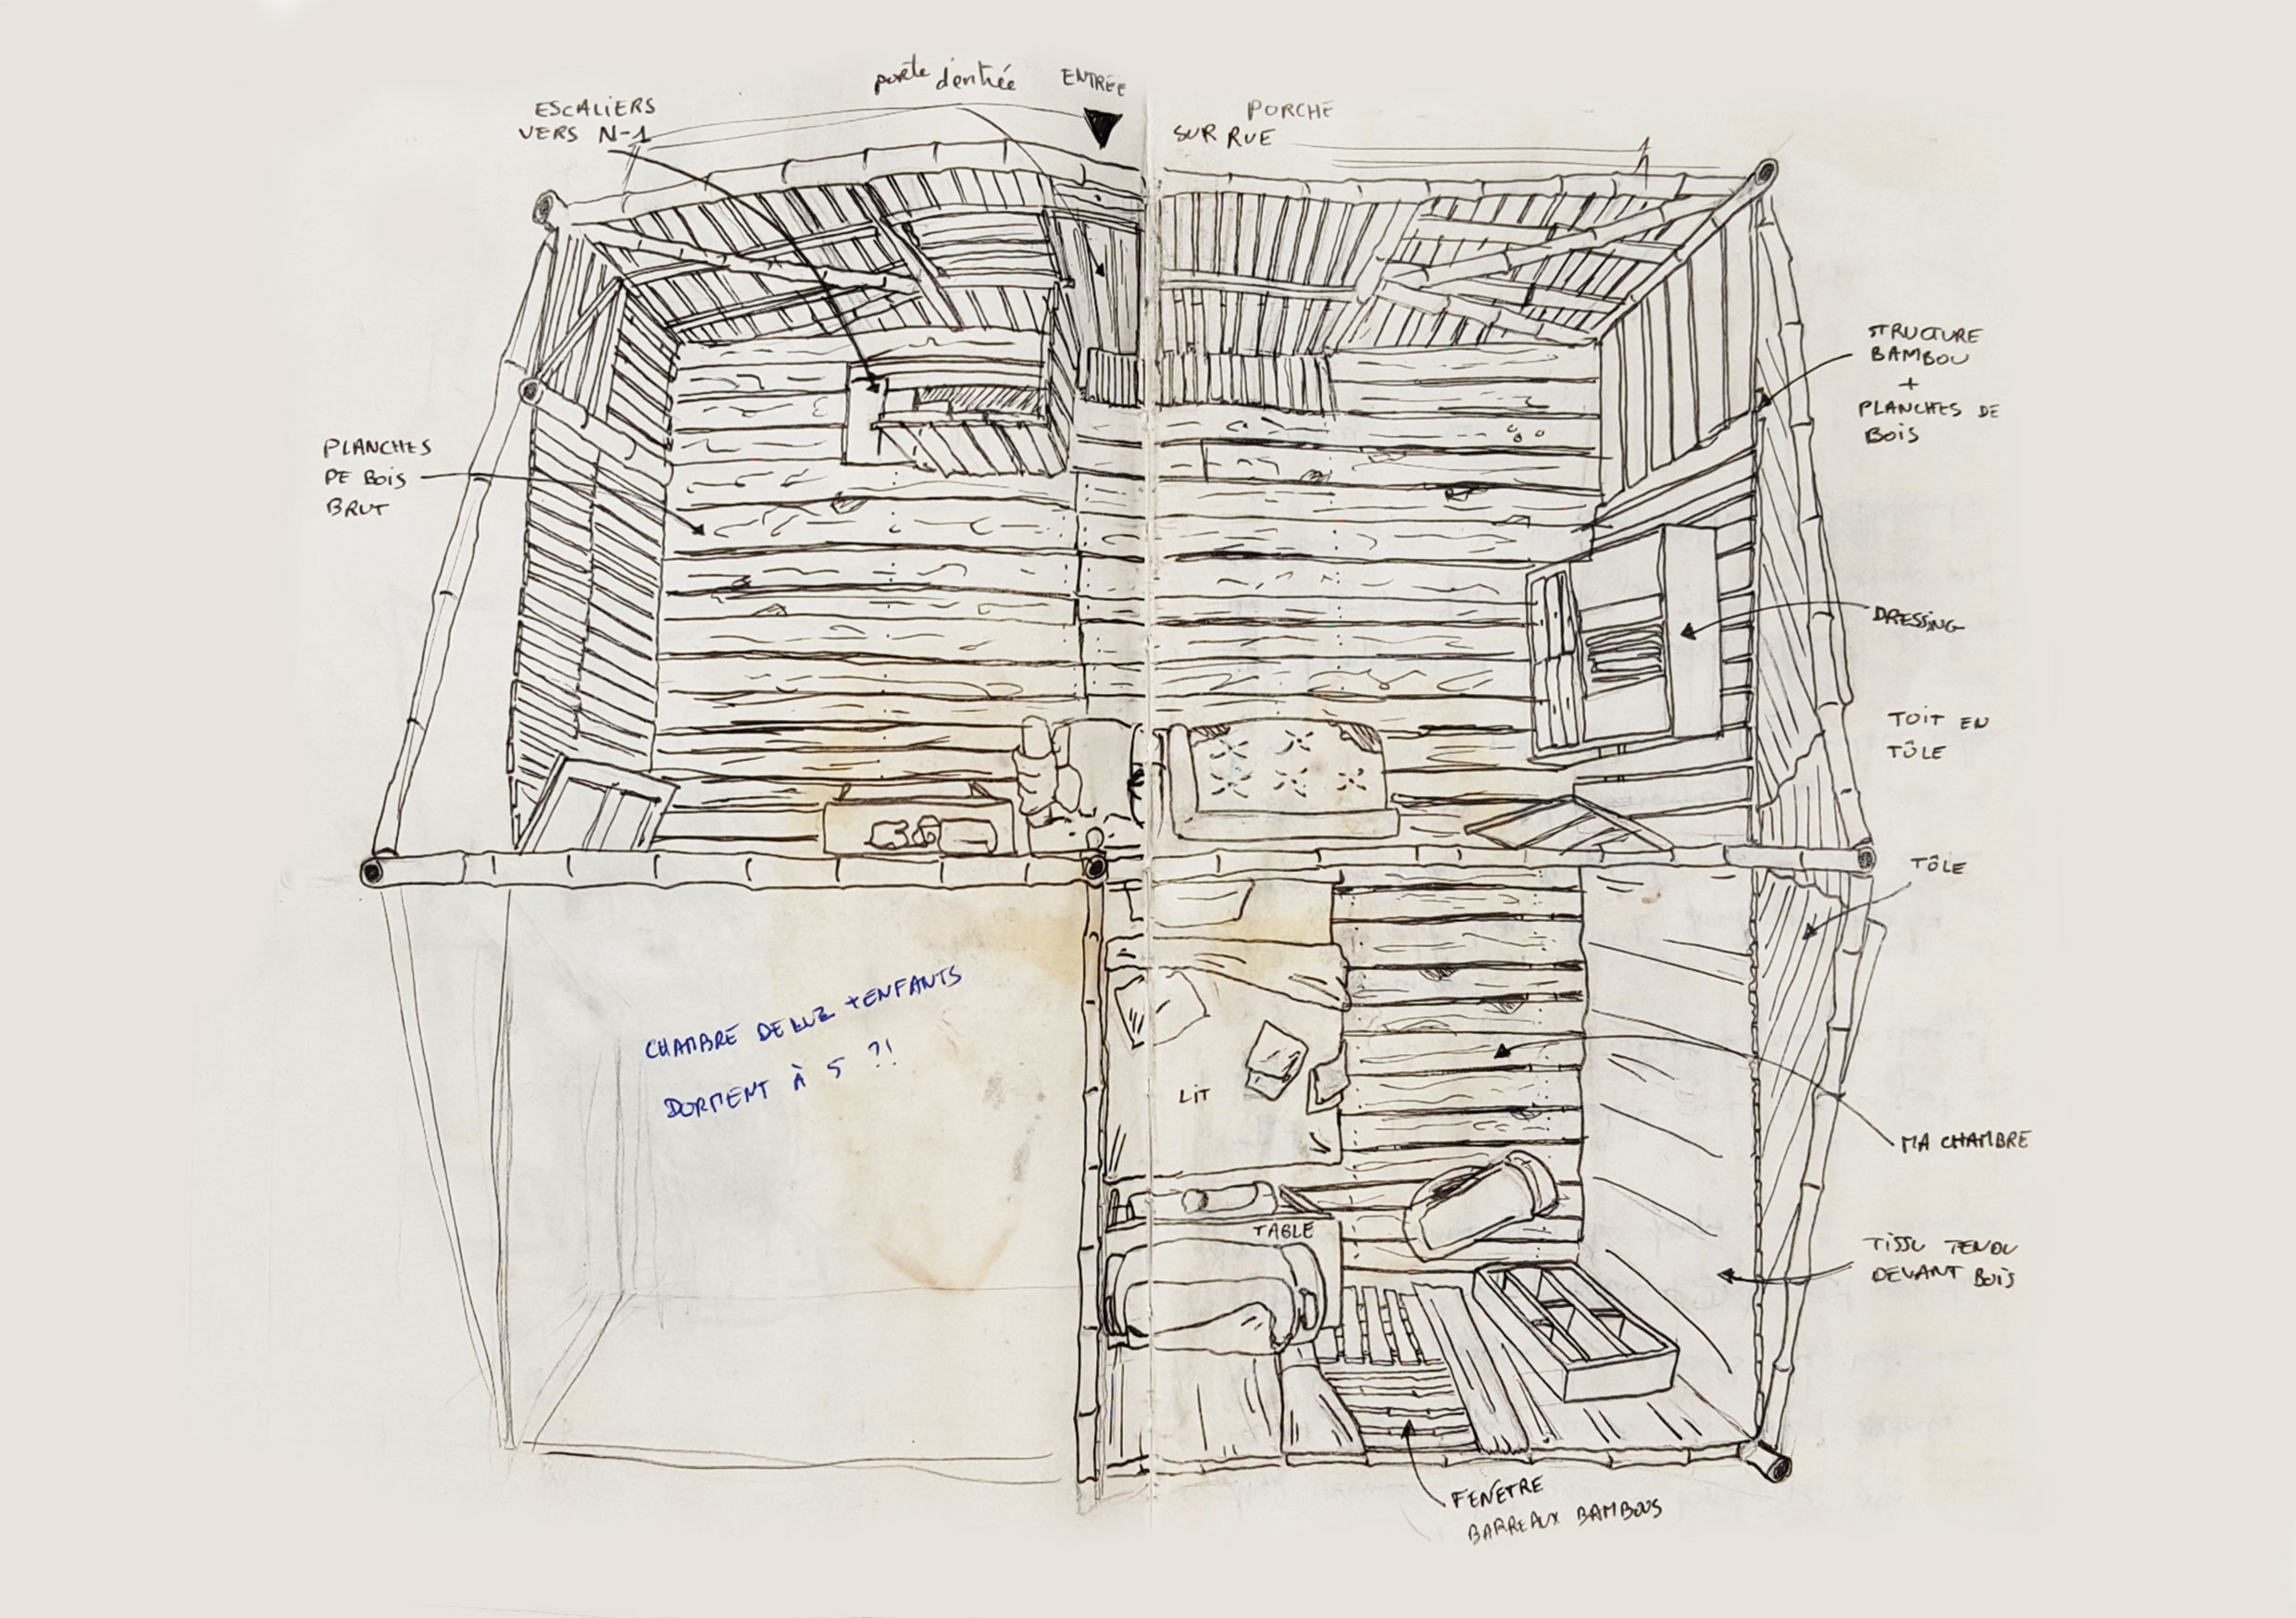 porte d'entrée
ENTRÉE
ESCALIERS
VERS N-1
PORCHE
SUR RUE
STRUCTURE
BAMBOU
+
PLANCHES DE
BOIS
PLANCHES
DE BOIS
BRUT
DRESSING
TOIT EN
TÔLE
TÔLE
CHAMBRE DE LUZ + ENFANTS
DORMENT À 5 ?!
LIT
MA CHAMBRE
TABLE
TISSU TENDU
DEVANT BOIS
FENÊTRE
BARREAUX BAMBOUS